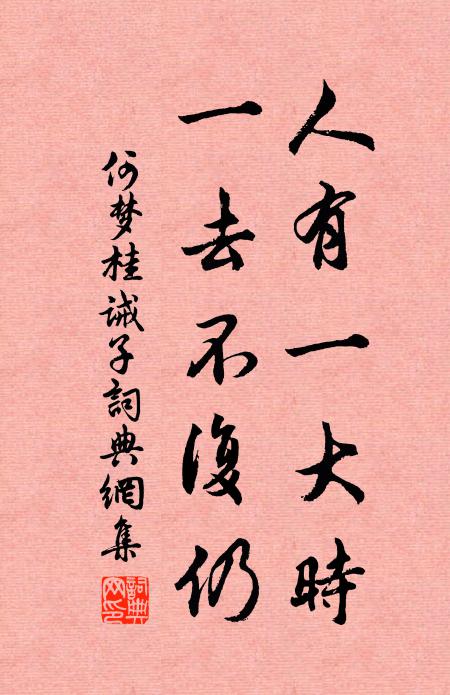 人有一大時
一去不復仍
何梦桂誡子詞典網集
詞典
网印